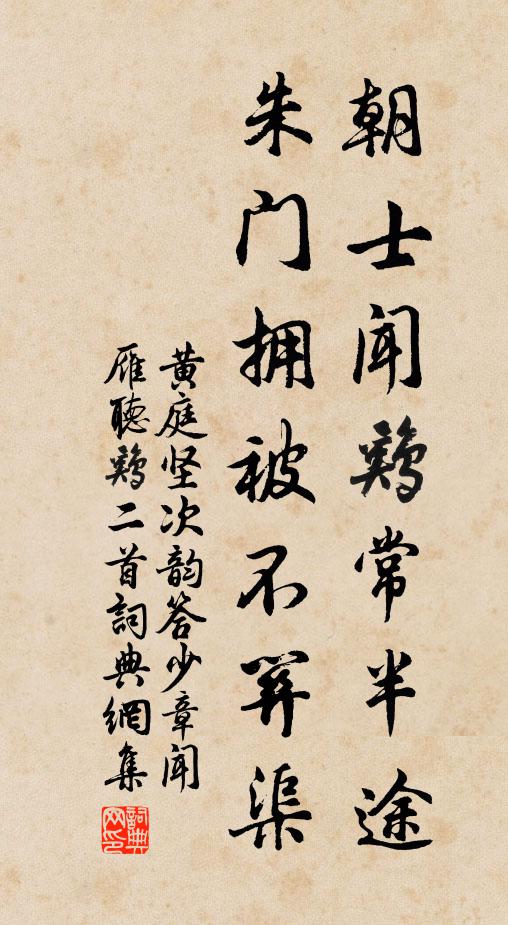 朝士闻鷄常半途
朱门拥被不關渠
黄庭坚次韵答少章闻
雁聽鷄二首詞典網集
詞典网印